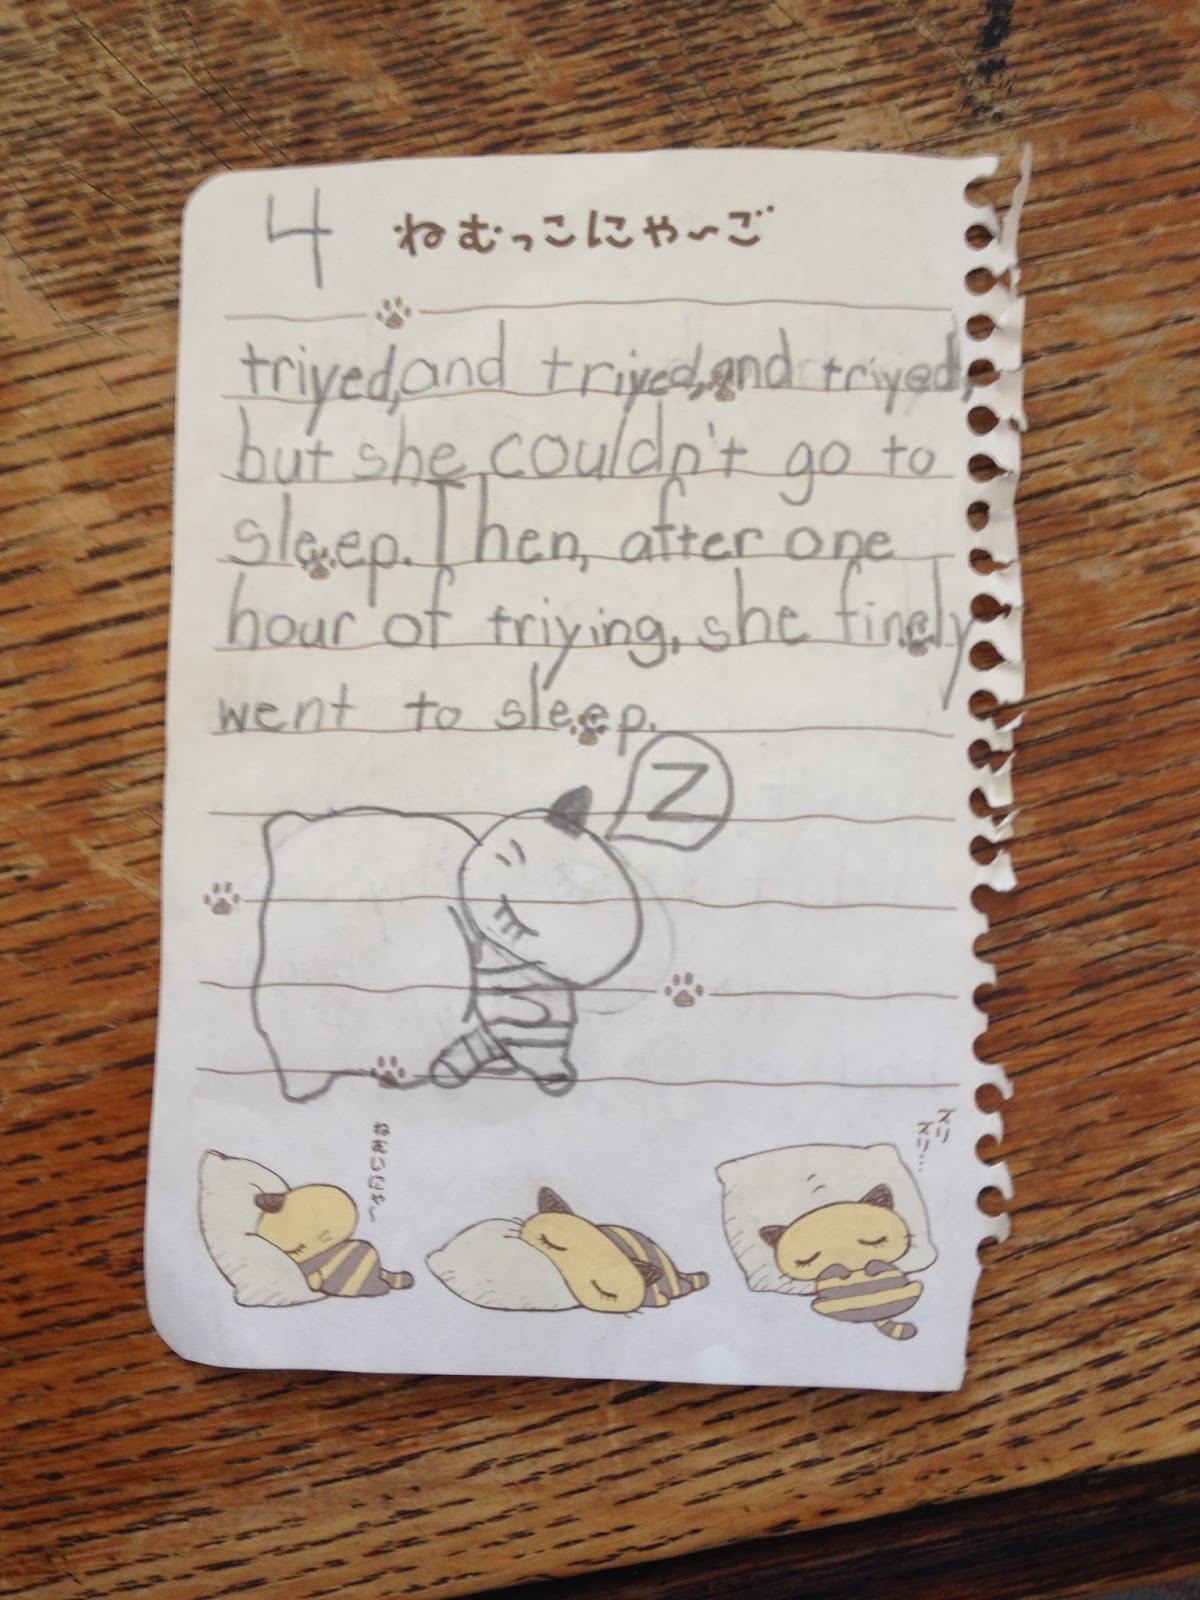 4 ねむっこにゃ〜ご
triyed, and triyed, and triyed,
but she couldn't go to
sleep. Then, after one
hour of triying, she finely
went to sleep.
Z
ねむいにゃ〜
ズリ
ズリ…